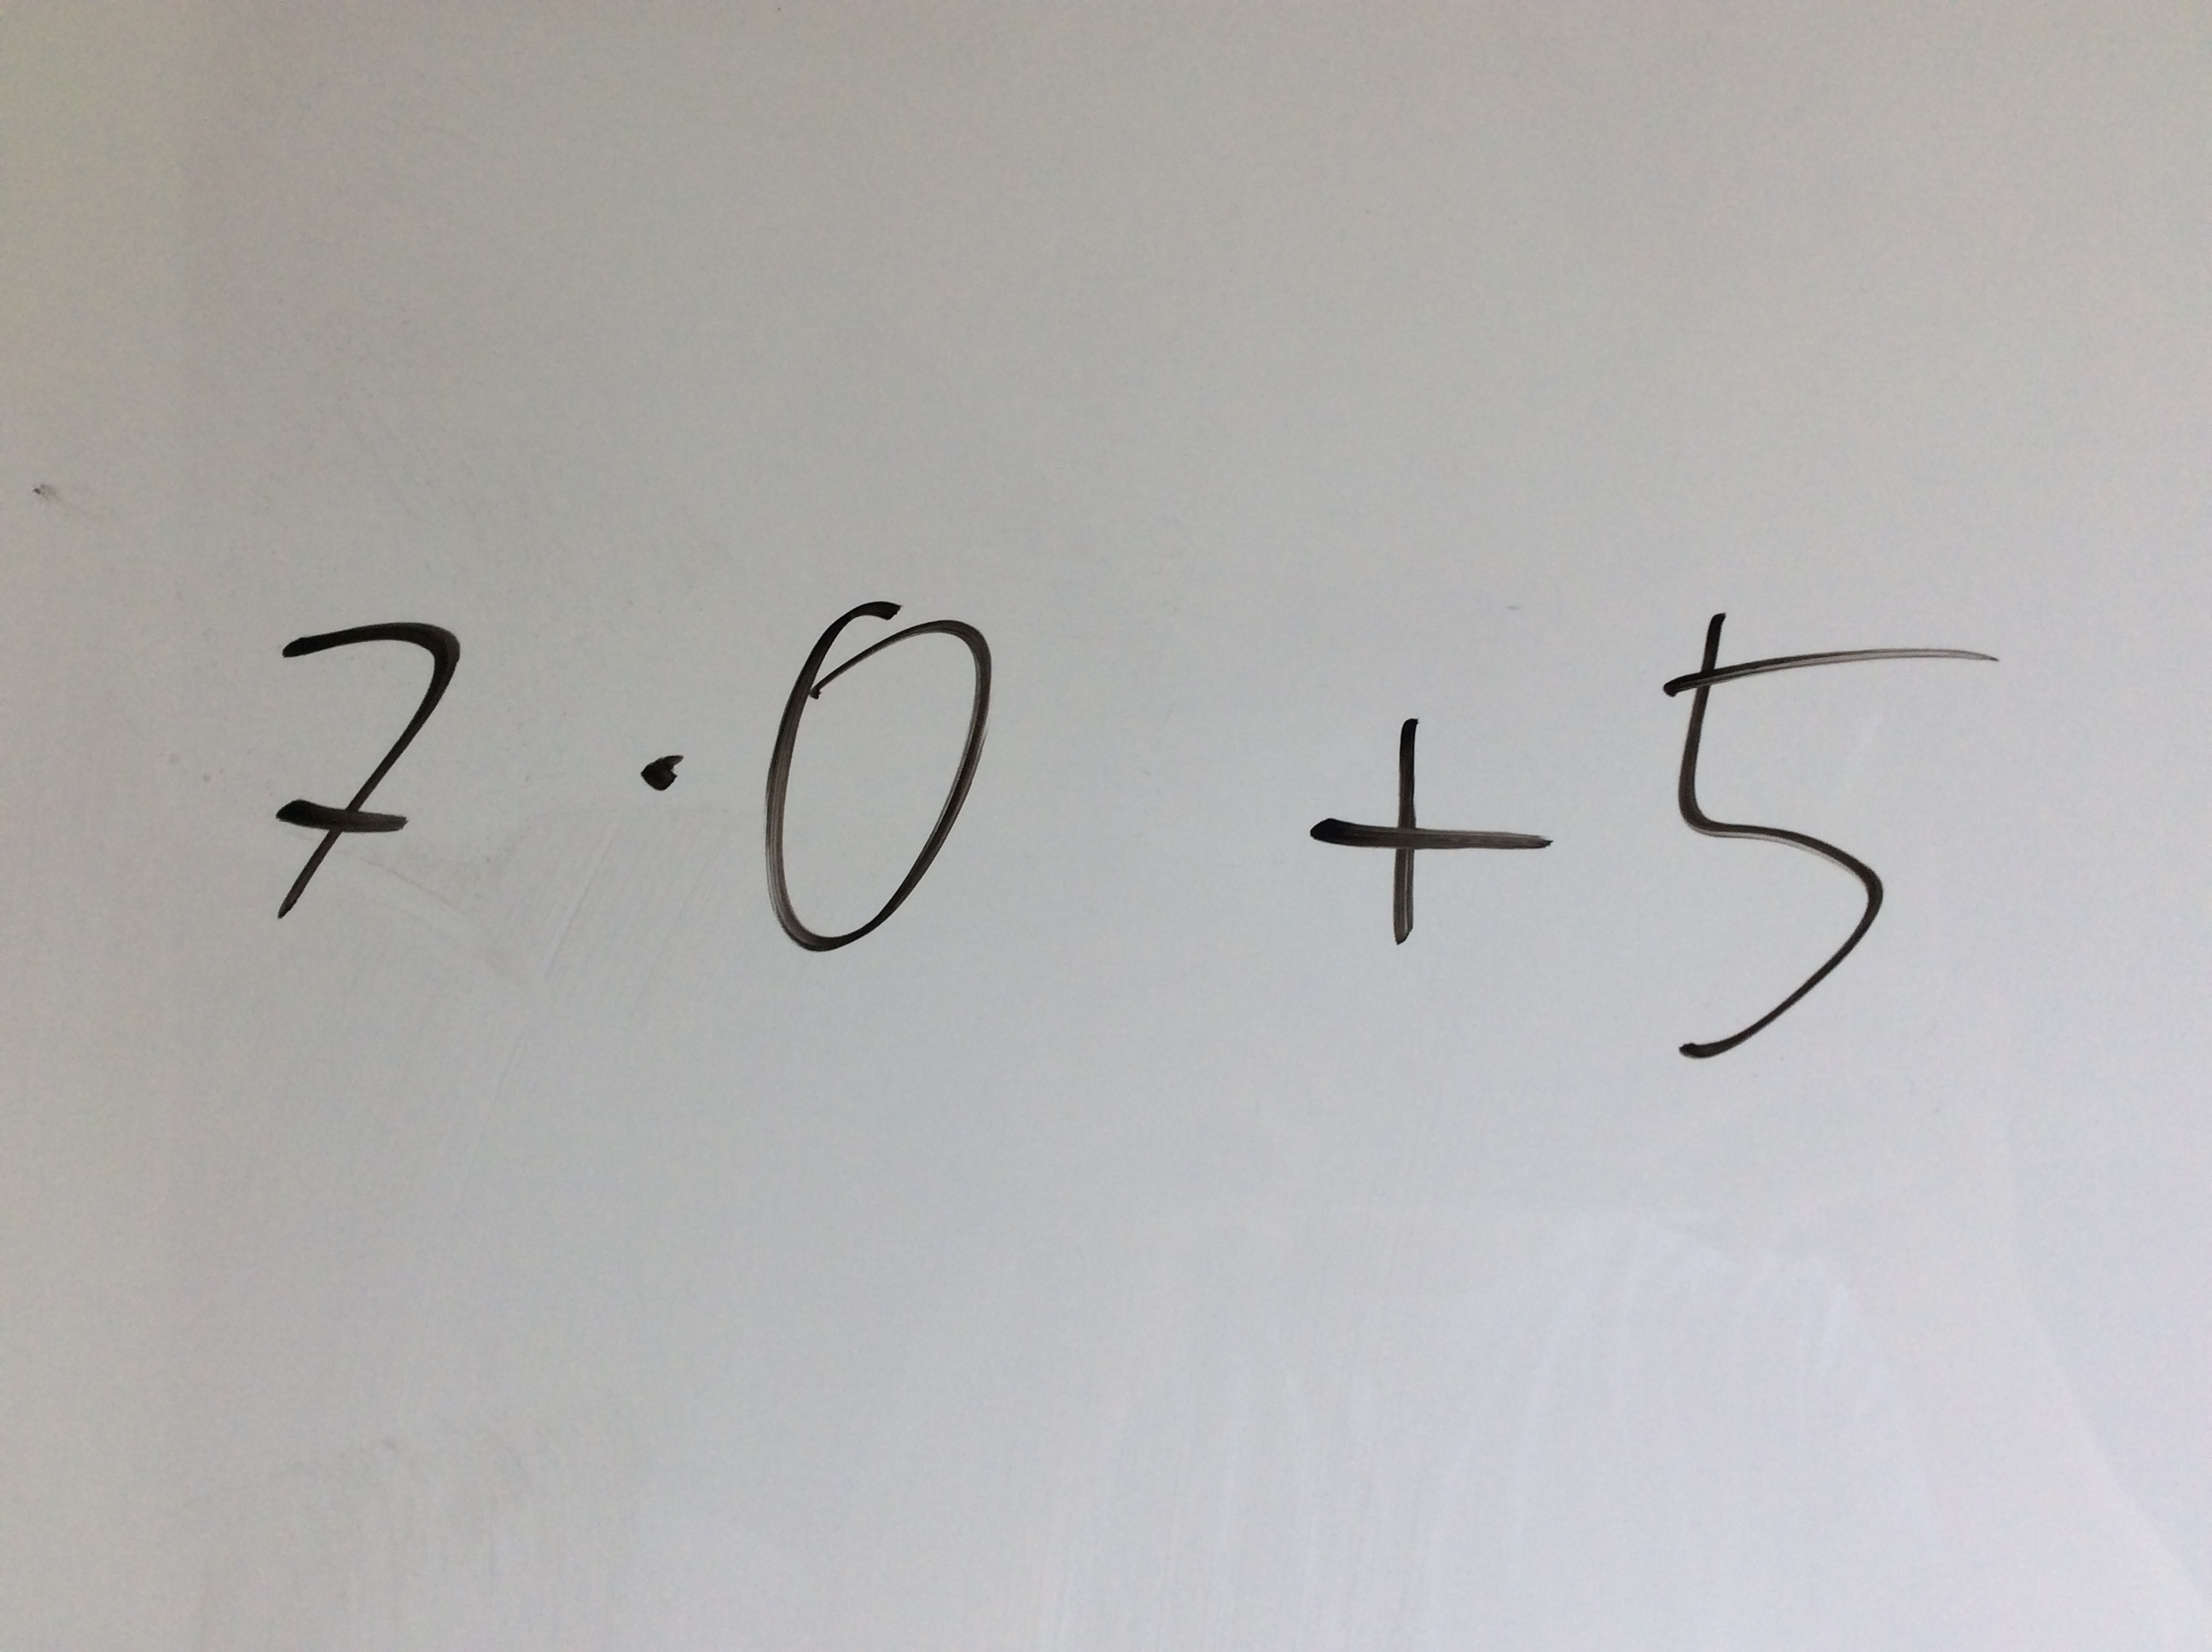 7 · 0 + 5